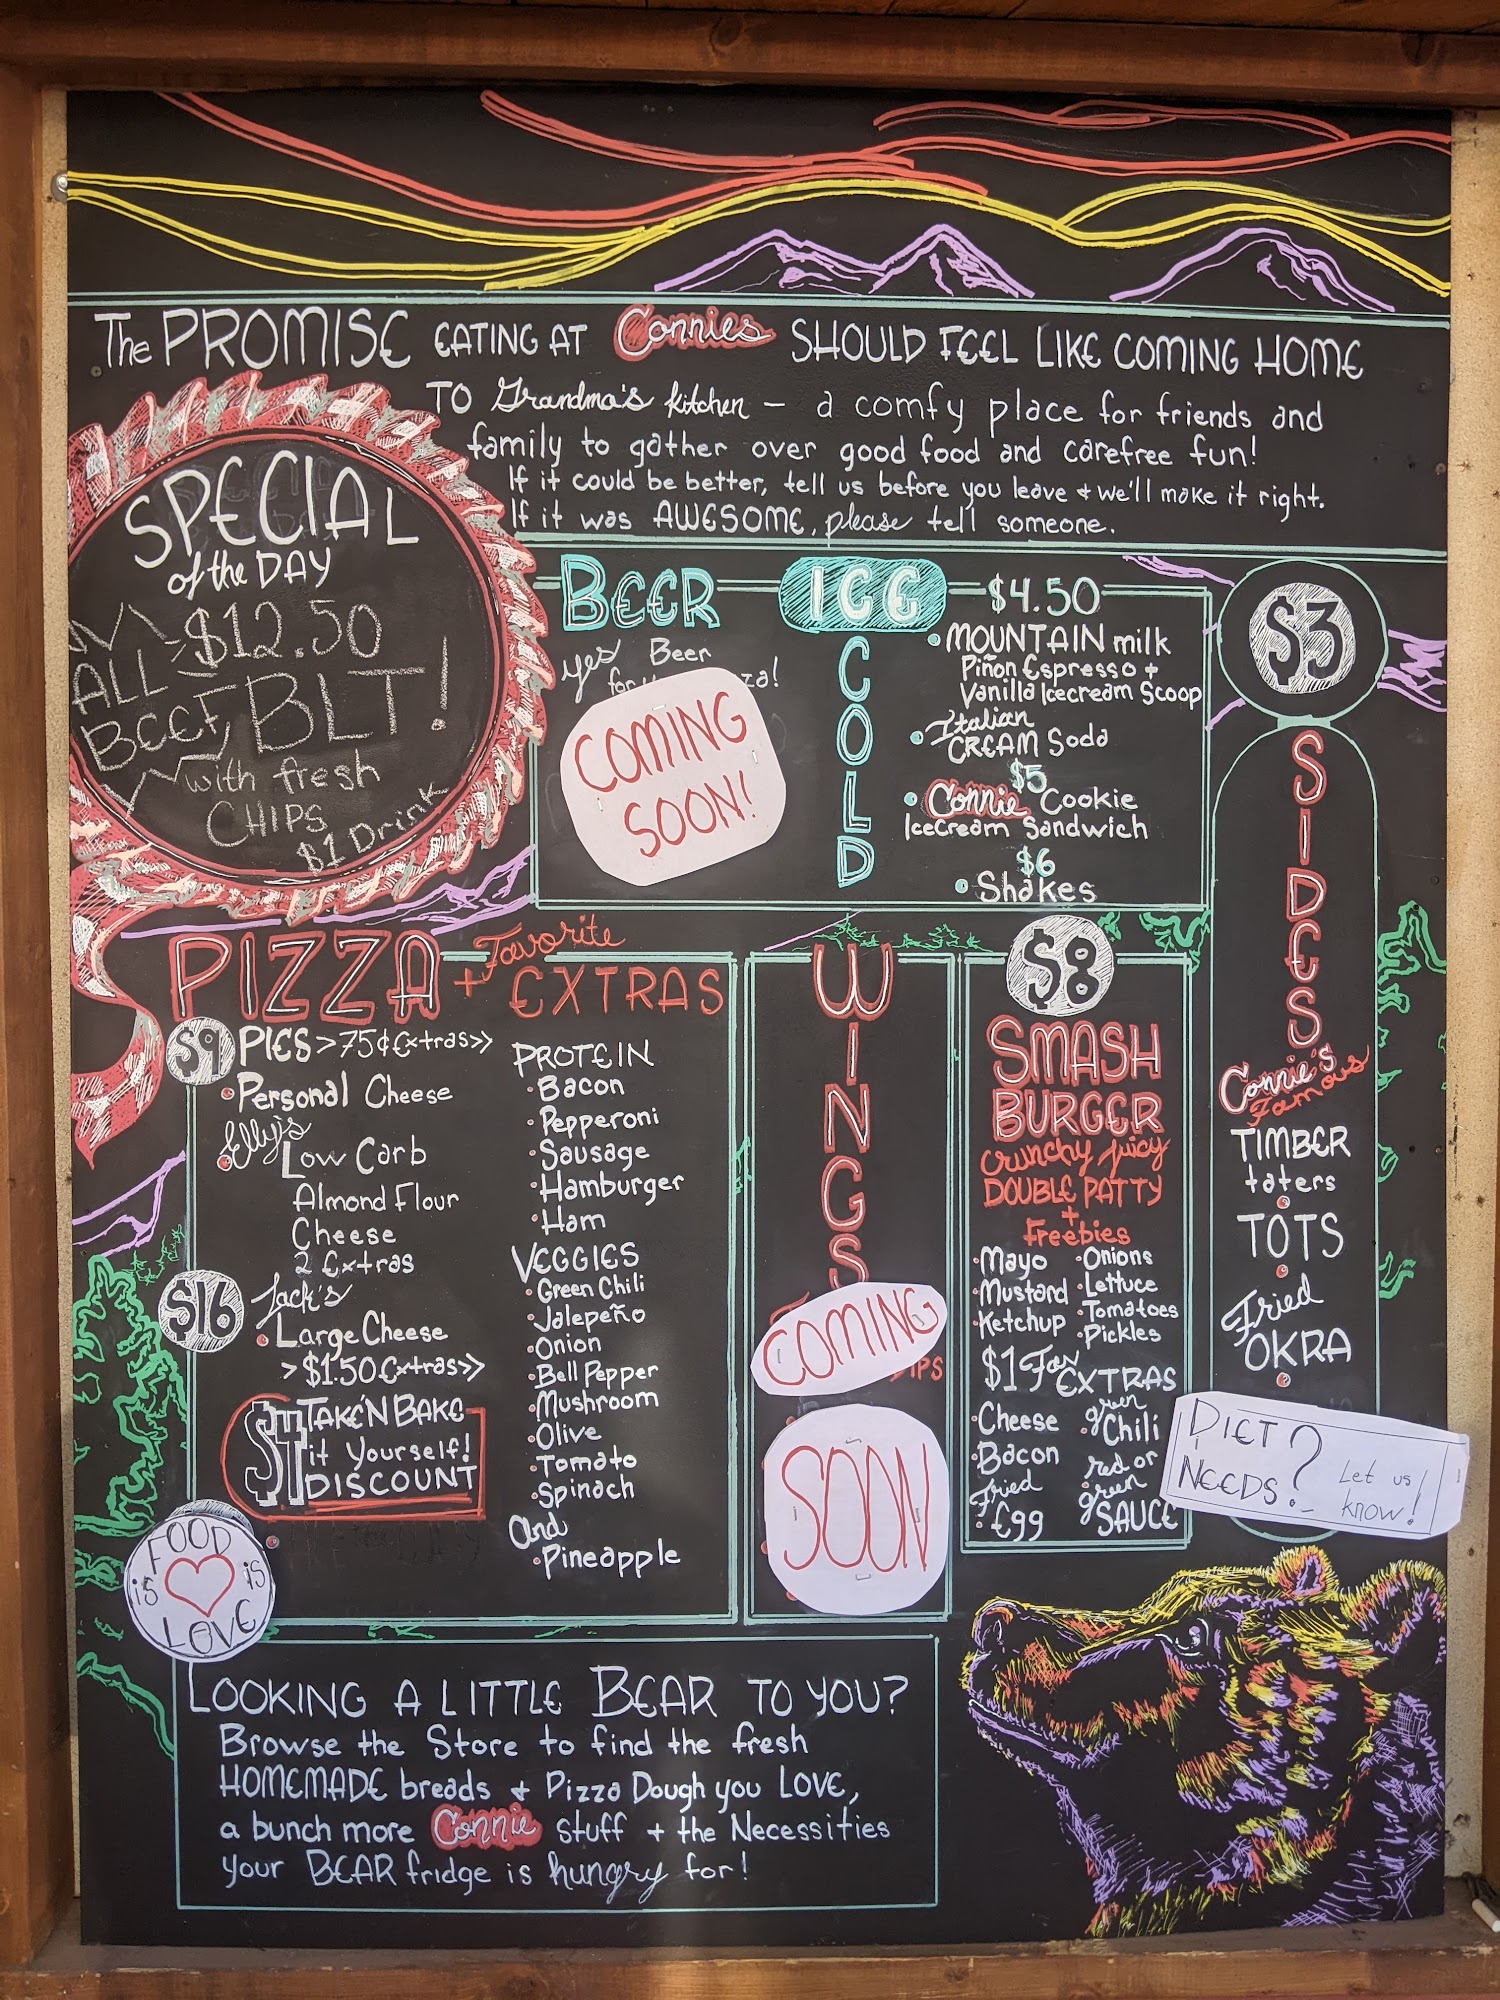 The PROMISE EATING AT Connies SHOULD FEEL LIKE COMING HOME
TO Grandma's kitchen – a comfy place for friends and
family to gather over good food and carefree fun!
If it could be better, tell us before you leave + we'll make it right.
If it was AWESOME, please tell someone.
SPECIAL
of the DAY
$12.50
ALL
BEEF, BLT!
with fresh
CHIPS
$1 Drink
BEER
yes Beer
COMING
SOON!
ICE
COLD
$4.50
MOUNTAIN milk
Piñon Espresso +
Vanilla Icecream Scoop
Italian
CREAM Soda
$5
Connie Cookie
Icecream Sandwich
$6
Shakes
$3
SIDES
Connie's
Famous
TIMBER
taters
TOTS
Fried
OKRA
DIET
NEEDS?
Let us
know!
PIZZA + Favorite
EXTRAS
$9 PIES > 75¢ Extras >>
Personal Cheese
Elly's
Low Carb
Almond Flour
Cheese
2 Extras
$16 Jack's
Large Cheese
> $1.50 Extras >>
$4 TAKE'N BAKE
it Yourself!
DISCOUNT
PROTEIN
Bacon
Pepperoni
Sausage
Hamburger
Ham
VEGGIES
Green Chili
Jalepeño
Onion
Bell Pepper
Mushroom
Olive
Tomato
Spinach
And
Pineapple
WINGS
COMING
SOON
$8
SMASH
BURGER
Crunchy Juicy
DOUBLE PATTY
+
Freebies
Mayo Onions
Mustard Lettuce
Ketchup Tomatoes
Pickles
$1 Fav
EXTRAS
Cheese
Bacon
Fried
E99
green
Chili
red or
green
SAUCE
FOOD
is is
LOVE
LOOKING A LITTLE BEAR TO YOU?
Browse the Store to find the fresh
HOMEMADE breads + Pizza Dough you LOVE,
a bunch more Connie stuff + the Necessities
your BEAR fridge is hungry for!